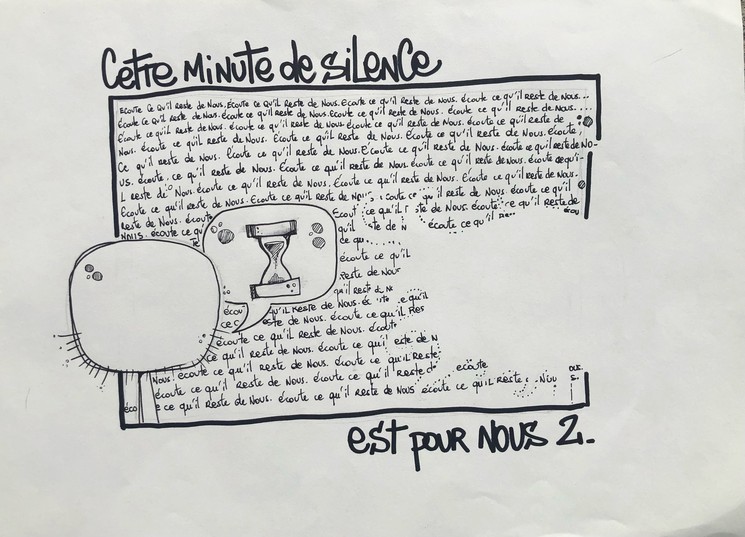 Cette minute de silence
écoute ce qu'il reste de nous. écoute ce qu'il reste de nous. écoute ce qu'il reste de nous. écoute ce qu'il reste de nous...
écoute ce qu'il reste de nous. écoute ce qu'il reste de nous. écoute ce qu'il reste de nous. écoute ce qu'il reste de nous...
écoute ce qu'il reste de nous. écoute ce qu'il reste de nous. écoute ce qu'il reste de nous. écoute ce qu'il reste de
nous. écoute ce qu'il reste de nous. écoute ce qu'il reste de nous. écoute ce qu'il reste de nous. écoute,
ce qu'il reste de nous. écoute ce qu'il reste de nous. écoute ce qu'il reste de nous. écoute ce qu'il reste de no-
us. écoute. ce qu'il reste de nous. écoute ce qu'il reste de nous. écoute ce qu'il reste de nous. écoute ce qu'i-
l reste de nous. écoute ce qu'il reste de nous. écoute ce qu'il reste de nous. écoute ce qu'il reste de nous.
écoute ce qu'il reste de nous. écoute ce qu'il reste de nous. écoute ce qu'il reste de nous. écoute ce qu'il
reste de nous. écoute ce qu'il reste de nous. écoute ce qu'il reste de
nous. écoute ce qu'il te de n écoute ce qu'il
ce qu
écoute ce qu'il
reste de nous
qu'il reste de
écou qu'il reste de nous. éc ste e qu'il
ce q este de nous. écoute ce qu'il res
écoute ce qu'il reste de nous. écoute
ce qu'il reste de nous. écoute ce qu'il este de n
écoute ce qu'il reste de nous. écoute ce qu'il reste
nous. écoute ce qu'il reste de nous. écoute ce qu'il reste d écoute
écoute ce qu'il reste de nous. écoute ce qu'il reste de nous écoute ce qu'il reste
éco e ce qu'il reste de nous. écoute ce qu'il reste de nous
est pour nous 2.